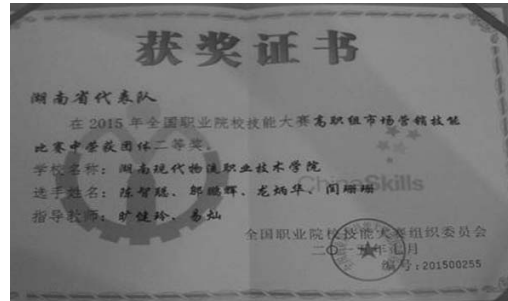 获奖证书
湖南省代表队
在2015年全国职业院校技能大赛高职组市场营销技能
比赛中荣获团体二等奖。
学校名称：湖南现代物流职业技术学院
ChinaSkills
选手姓名：陈智聪、邬 辉、龙炳华、阎珊珊
指导教师：旷健玲、易灿
全国职业院校技能大赛组织委员会
二〇一五年七月
编号：201500255